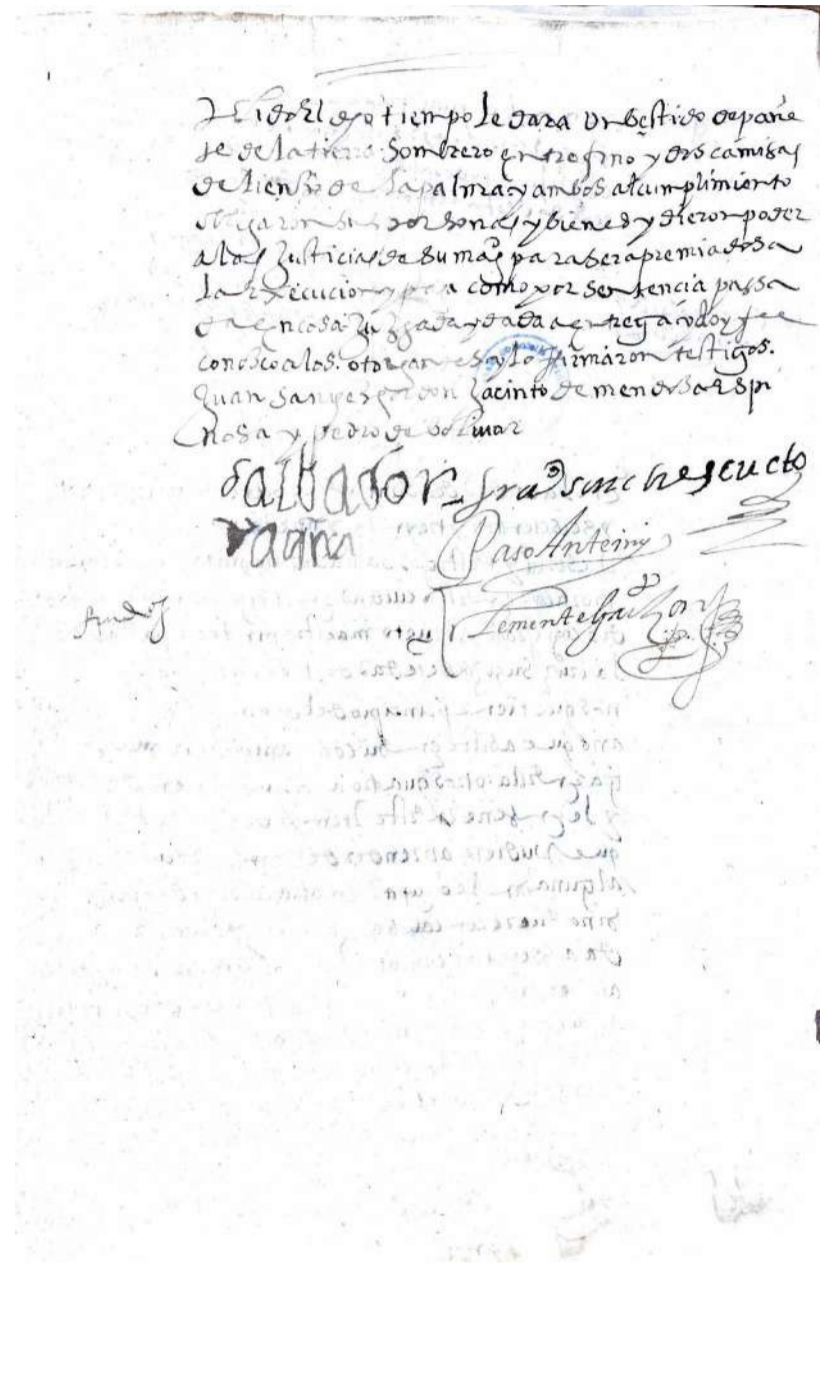 dho tiempo le dara un bestido de pañe
te de la tierra sombrero entrefino y dos camisas
de liensso de la palma y ambos al cumplimiento
obligaron sus personas y bienes y dieron poder
a las Justicias de su magd para ser apremiados a
la execucion y como por sentencia passa
da en cosa Juzgada y dada a entregar y doy fee
conosco a los otorgantes y lo firmaron testigos.
Juan don Jacinto de mendosa Espi
nosa y pedro de bolivar
Salbador franco sanches cueto
Paso Ante mi
Clemente